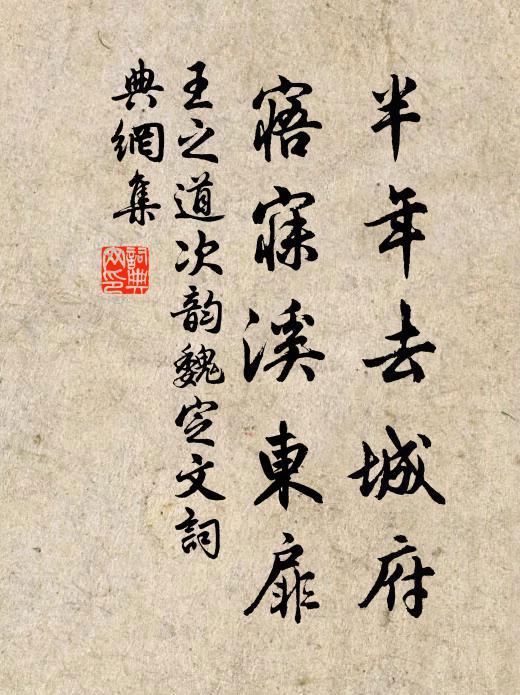 半年去城府
寤寐溪東扉
王之道次韵魏定文詞
典網集
詞典網印